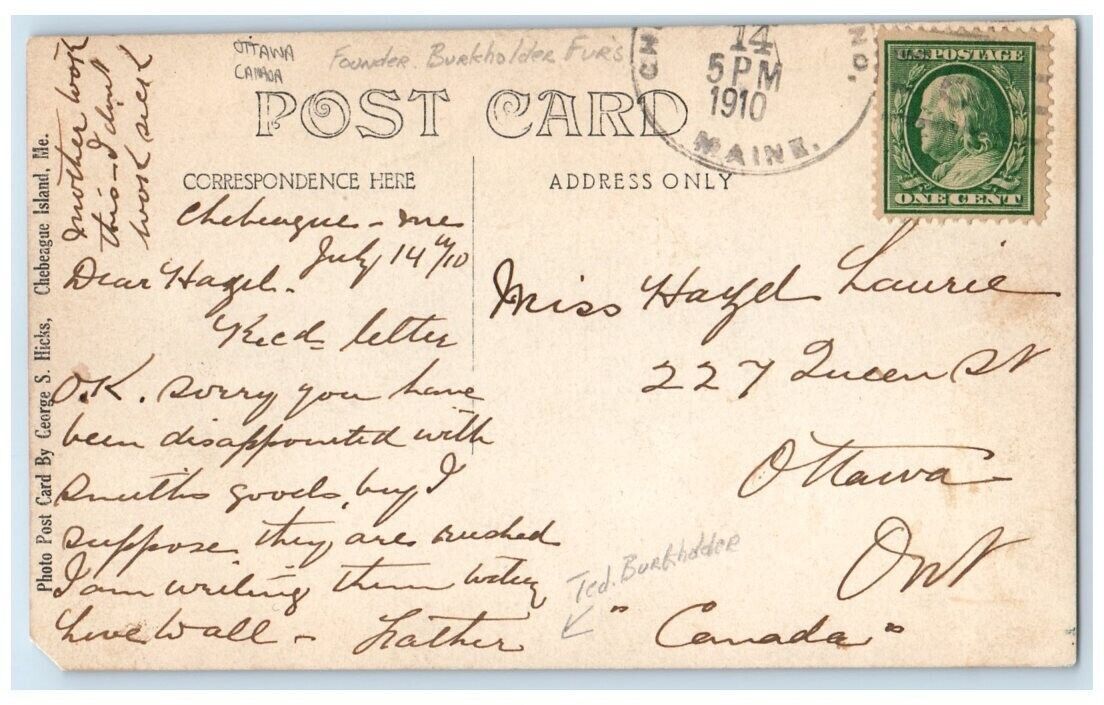 OTTAWA
CANADA
Founder. Burkholder Furs
POST CARD
CORRESPONDENCE HERE
ADDRESS ONLY
14
5 PM
1910
MAINE.
U.S. POSTAGE
ONE CENT
Photo Post Card By George S. Hicks, Chebeague Island, Me.
Mother took
this - I dont
look sick
Chebeague - me
July 14th/10
Dear Hazel.
Recd letter
O.K. sorry you have
been disappointed with
smiths goods, but I
suppose they are rushed
I am writing them today
Love to all - Father
Ted. Burkholder
Miss Hazel Laurie
227 Queen St
Ottawa
Ont
"Canada"